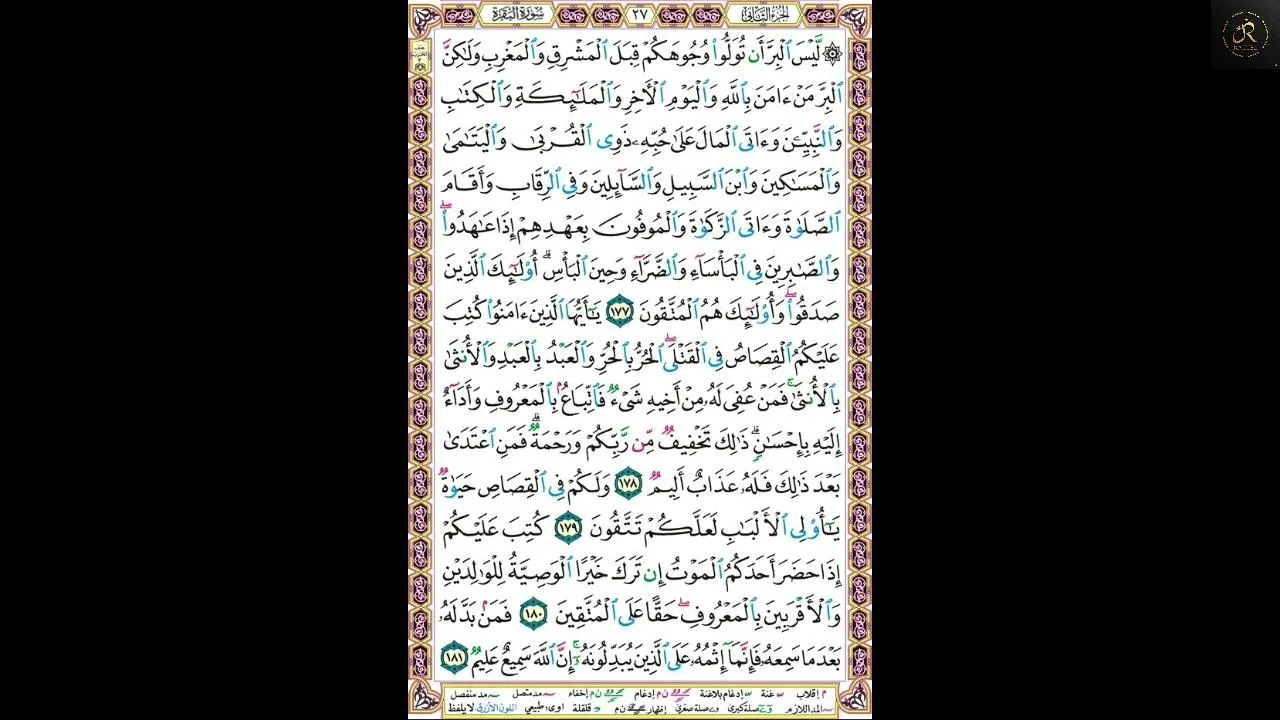 الجزء الثاني ٢٧ سورة البقرة
۞ لَّيْسَ ٱلْبِرَّ أَن تُوَلُّوا۟ وُجُوهَكُمْ قِبَلَ ٱلْمَشْرِقِ وَٱلْمَغْرِبِ وَلَـٰكِنَّ
ٱلْبِرَّ مَنْ ءَامَنَ بِٱللَّهِ وَٱلْيَوْمِ ٱلْـَٔاخِرِ وَٱلْمَلَـٰٓئِكَةِ وَٱلْكِتَـٰبِ
وَٱلنَّبِيِّـۧنَ وَءَاتَى ٱلْمَالَ عَلَىٰ حُبِّهِۦ ذَوِى ٱلْقُرْبَىٰ وَٱلْيَتَـٰمَىٰ
وَٱلْمَسَـٰكِينَ وَٱبْنَ ٱلسَّبِيلِ وَٱلسَّآئِلِينَ وَفِى ٱلرِّقَابِ وَأَقَامَ
ٱلصَّلَوٰةَ وَءَاتَى ٱلزَّكَوٰةَ وَٱلْمُوفُونَ بِعَهْدِهِمْ إِذَا عَـٰهَدُوا۟ ۖ
وَٱلصَّـٰبِرِينَ فِى ٱلْبَأْسَآءِ وَٱلضَّرَّآءِ وَحِينَ ٱلْبَأْسِ ۗ أُو۟لَـٰٓئِكَ ٱلَّذِينَ
صَدَقُوا۟ ۖ وَأُو۟لَـٰٓئِكَ هُمُ ٱلْمُتَّقُونَ ١٧٧ يَـٰٓأَيُّهَا ٱلَّذِينَ ءَامَنُوا۟ كُتِبَ
عَلَيْكُمُ ٱلْقِصَاصُ فِى ٱلْقَتْلَى ۖ ٱلْحُرُّ بِٱلْحُرِّ وَٱلْعَبْدُ بِٱلْعَبْدِ وَٱلْأُنثَىٰ
بِٱلْأُنثَىٰ ۚ فَمَنْ عُفِىَ لَهُۥ مِنْ أَخِيهِ شَىْءٌ فَٱتِّبَاعٌۢ بِٱلْمَعْرُوفِ وَأَدَآءٌ
إِلَيْهِ بِإِحْسَـٰنٍ ۗ ذَٰلِكَ تَخْفِيفٌ مِّن رَّبِّكُمْ وَرَحْمَةٌ ۗ فَمَنِ ٱعْتَدَىٰ
بَعْدَ ذَٰلِكَ فَلَهُۥ عَذَابٌ أَلِيمٌ ١٧٨ وَلَكُمْ فِى ٱلْقِصَاصِ حَيَوٰةٌ
يَـٰٓأُو۟لِى ٱلْأَلْبَـٰبِ لَعَلَّكُمْ تَتَّقُونَ ١٧٩ كُتِبَ عَلَيْكُمْ
إِذَا حَضَرَ أَحَدَكُمُ ٱلْمَوْتُ إِن تَرَكَ خَيْرًا ٱلْوَصِيَّةُ لِلْوَٰلِدَيْنِ
وَٱلْأَقْرَبِينَ بِٱلْمَعْرُوفِ ۖ حَقًّا عَلَى ٱلْمُتَّقِينَ ١٨٠ فَمَنۢ بَدَّلَهُۥ
بَعْدَ مَا سَمِعَهُۥ فَإِنَّمَآ إِثْمُهُۥ عَلَى ٱلَّذِينَ يُبَدِّلُونَهُۥٓ ۚ إِنَّ ٱللَّهَ سَمِيعٌ عَلِيمٌ ١٨١
م إقلاب غنة إدغام بلاغنة ن م إدغام ن م إخفاء مد متصل مد منفصل
المد اللازم صلة كبرى صلة صغرى إظهار ن م د قلقلة اوى طبيعي اللون الأزرق لا يلفظ